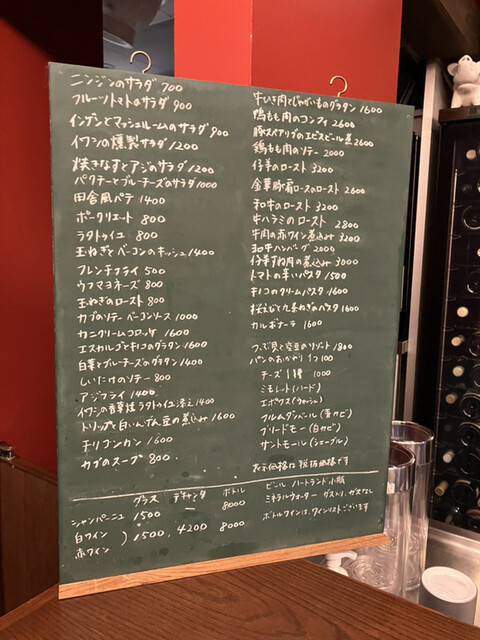 ニンジンのサラダ 700
フルーツトマトのサラダ 900
インゲンとマッシュルームのサラダ 900
イワシの燻製サラダ 1200
焼きなすとアジのサラダ 1200
パクチーとブルーチーズのサラダ 1000
田舎風パテ 1400
ポークリエット 800
ラタトゥイユ 800
玉ねぎとベーコンのキッシュ 1400
フレンチフライ 500
ウフマヨネーズ 800
玉ねぎのロースト 800
カブのソテー ベーコンソース 1000
カニクリームコロッケ 1600
エスカルゴとキノコのグラタン 1600
白菜とブルーチーズのグラタン 1400
しいたけのソテー 800
アジフライ 1400
イワシの香草焼 ラタトゥイユ添え 1400
トリップと白いんげん豆の煮込み 1600
チリコンカン 1600
カブのスープ 800
牛ひき肉とじゃがいものグラタン 1600
鴨もも肉のコンフィ 2600
豚スペアリブのエピスビール煮 2600
鶏もも肉のソテー 2000
仔羊のロースト 3200
金華豚肩ロースのロースト 2600
和牛のロースト 3200
牛ハラミのロースト 2800
牛肉の赤ワイン煮込み 3200
和牛ハンバーグ 2000
仔羊すね肉の煮込み 3000
トマトの辛いパスタ 1500
キノコのクリームパスタ 1600
桜えびと九条ねぎのパスタ 1600
カルボナーラ 1600
つぶ貝と空豆のリゾット 1800
パンのおかわり 1つ 100
チーズ 1種 1000
ミモレット(ハード)
エポワス(ウォッシュ)
フルムダンベール(青カビ)
ブリードモー(白カビ)
サントモール(シェーブル)
表示価格は税抜価格です
グラス デキャンタ ボトル
シャンパーニュ 1500 ー 8000
白ワイン
赤ワイン ) 1500 4200 8000
ビール ハートランド小瓶
ミネラルウォーター ガスあり、ガスなし
ボトルワインは、ワインリストございます